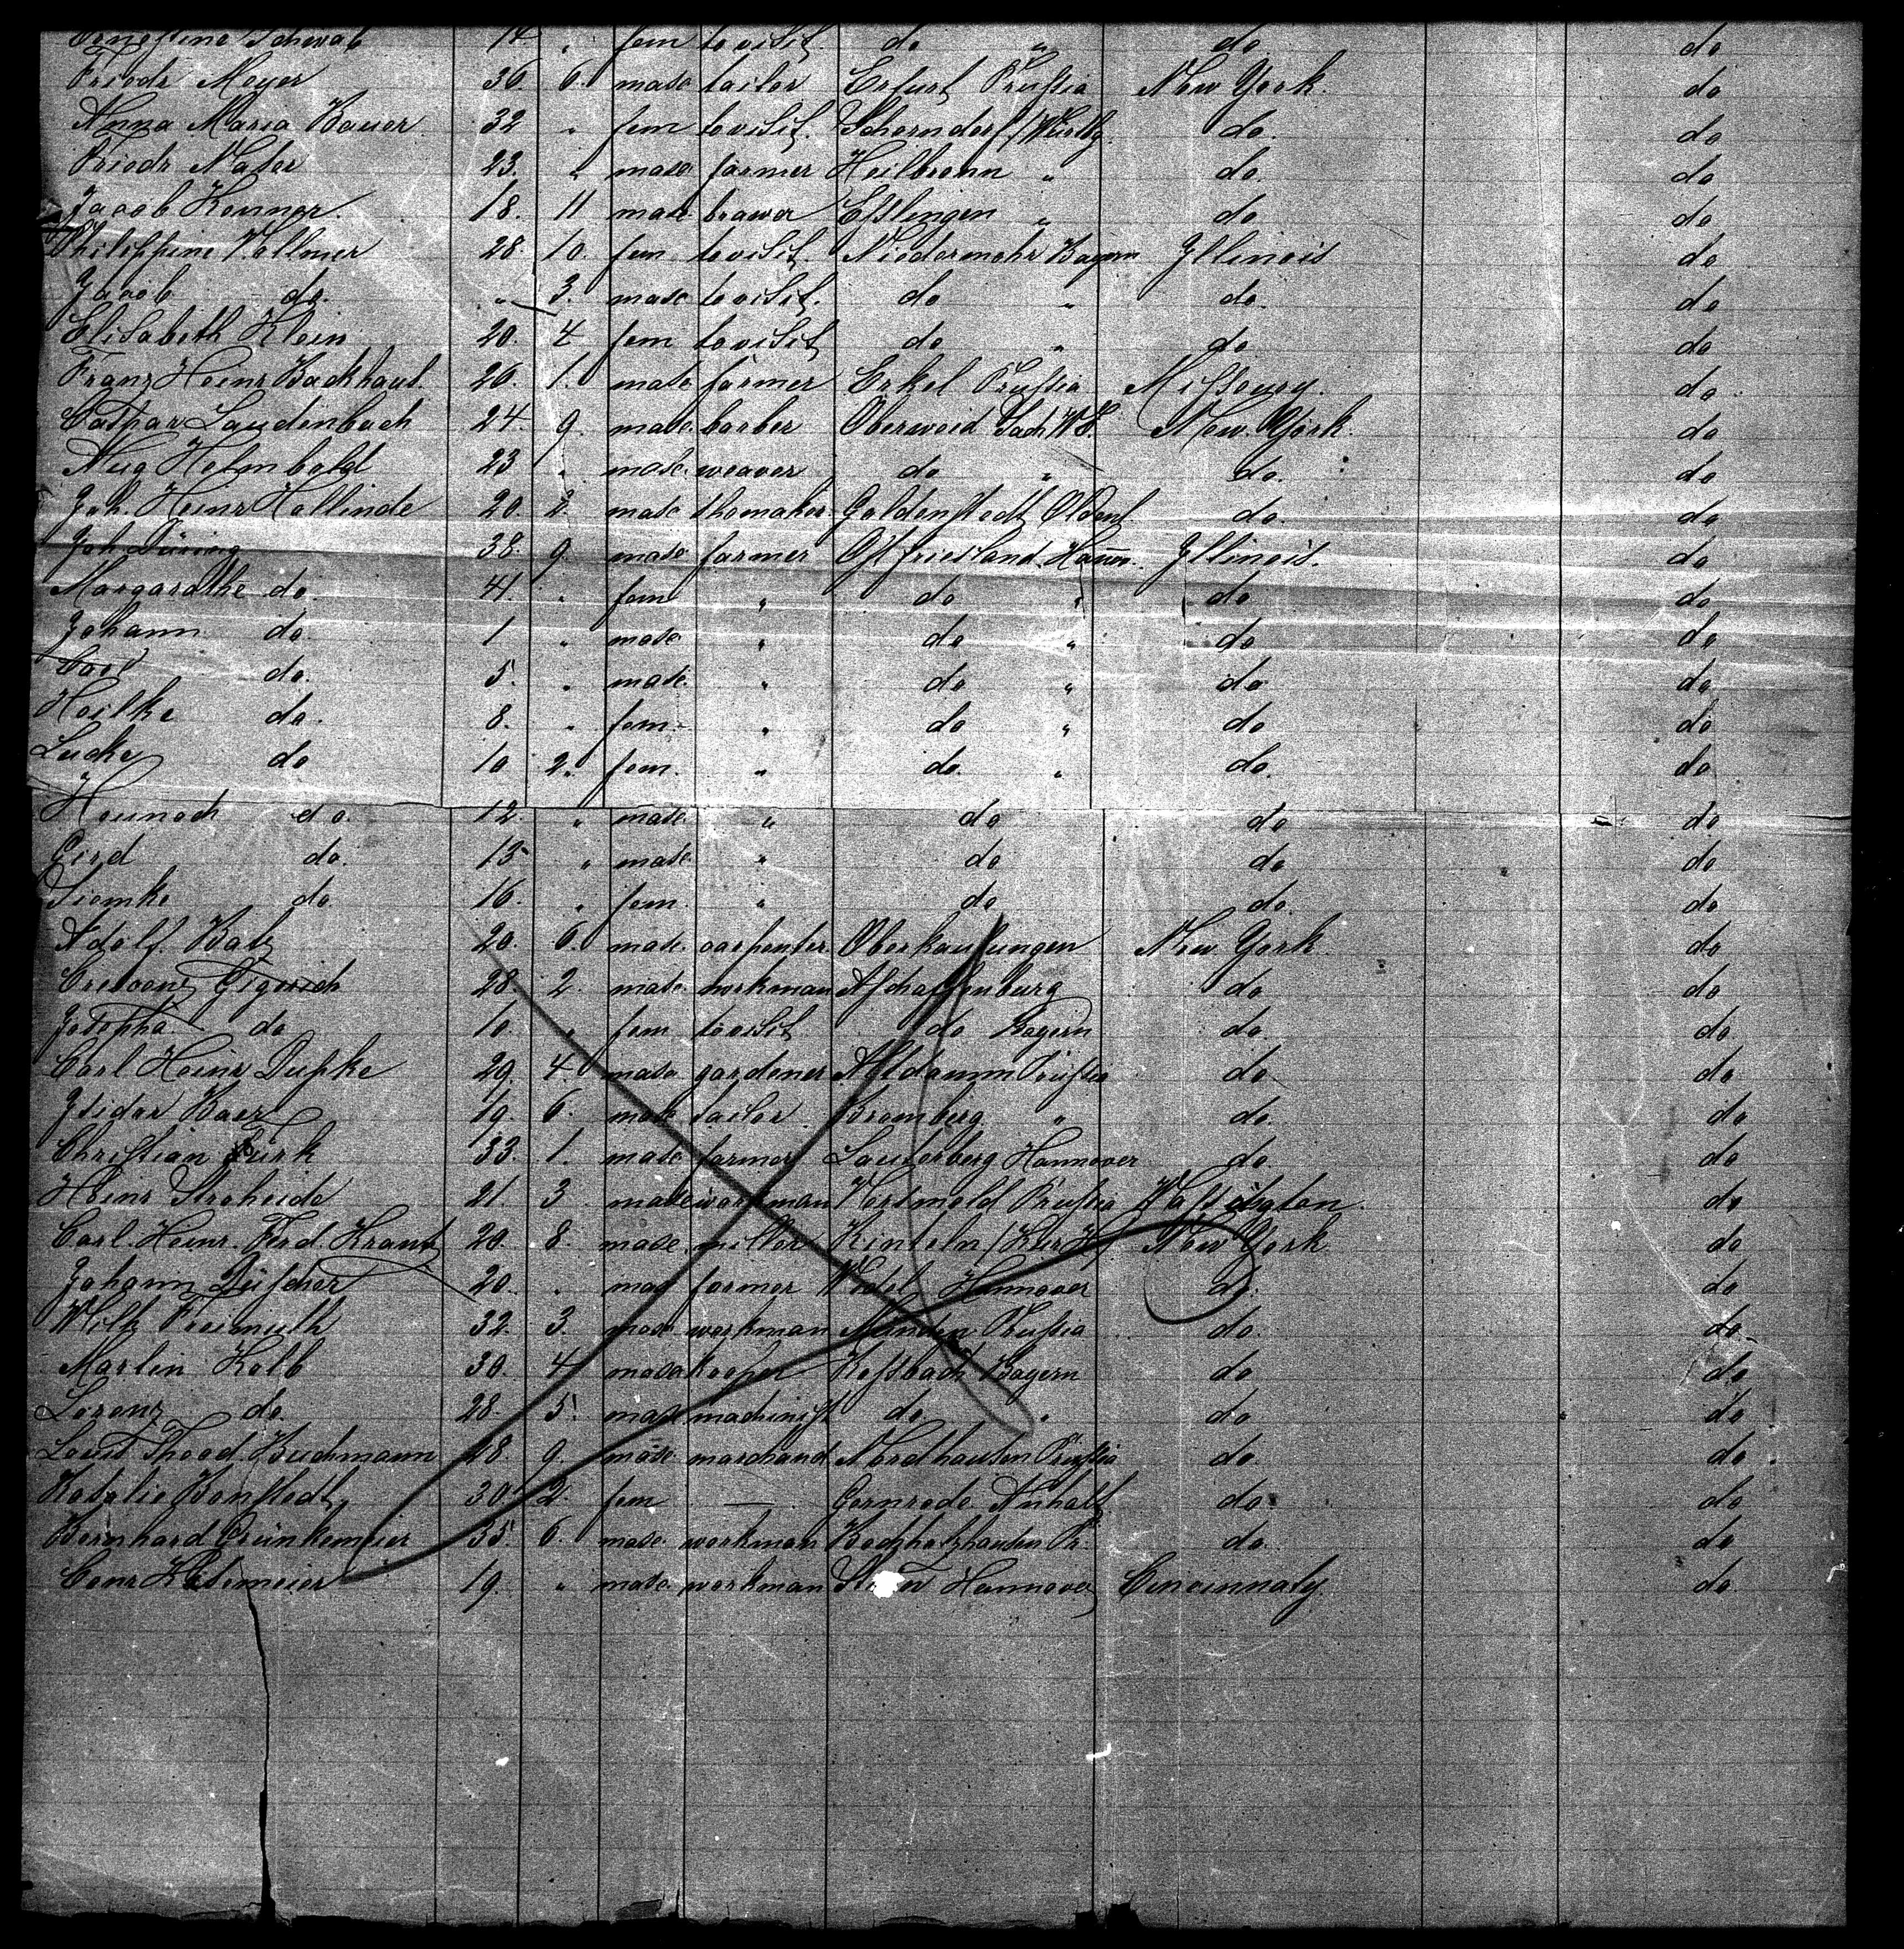 Ernestine Schwab 14. " fem to visit. do " do do
Friedr Meyer 36. 6. masc tailor Erfurt Prussia New York. do
Anna Maria Bauer. 32 " fem to visit. Schorndorf/Würtbg. do. do
Friedr 23. " masc farmer Heilbronn " do. do
Jacob 18. 11 masc brewer Esslingen " do. do
Philippine Vollmer 28. 10. fem to visit. Niedermohr Bayern Illinois do
Jacob do. " 3. masc to visit. do " do. do
Elisabeth Klein 20. 4 fem to visit do " do do
Franz Heinr Backhaus. 26. 1. masc farmer Erkel Prussia Missoury. do
Caspar Laudenbach 24. 9. masc. barber Oberweid Sach/W.E. New York. do
Aug Helmbold 23 " masc. weaver do " do. do
Joh. Heinr Hellinde 20. 2. masc shomaker. Goldenstedt Oldenb. do. do
Joh Düring 38. 9 masc farmer Ostfriesland Hannr. Illinois. do
Margarathe do. 41. " fem " do " do do
Johann do. 1 " masc. " do " do do
do. 5. " masc. " do " do do
Heilke do. 8. " fem. " do " do do
Lucke do 10 2. fem. " do. " do. do
do. 12. " masc. " do do do
Gerd do. 13 " masc. " do do do
Siemke do. 16. " fem. " do do. do
Adolf Batz 20. 6. masc. carpenter. Oberkaufungen New York. do
28. 2. masc. workman Aschaffenburg do do
Josepha do 10. " fem to visit do Bayern do. do.
Carl Heinr Dupke 29. 4. masc gardener Altdamm Prussia do do
Isidor Baer 19. 6. masc tailor. Bromberg " do. do
Christian Türk 33. 1. masc farmer Lauterberg Hannover do. do
Heinr Stroheide 21. 3 masc workman Versmold Prussia Wassington. do
Carl. Heinr. Ferd. Krantz 20. 8. masc. miller Rinteln/Kur H/ New York do
Johann Lüscher 20. " masc farmer Hannover do. do
Wilh Freimuth 32. 3. masc workman Minden Prussia do. do.
Martin Kolb 30. 4 masc kooper Rossbach Bayern do do
Lorenz do. 28. 5. masc machinist do " do do
Louis Theod. Buchmann 28. 9. masc marchand Nordhausen Prussia do do
Rosalie Bonstedt, 30. 2. fem — Gernrode Anhalt do. do
Bernhard Grünkemeier 35. 6. masc. workman Borgholzhausen Pr. do. do
Conr 19. " masc. workman Hannover Cincinnaty do.